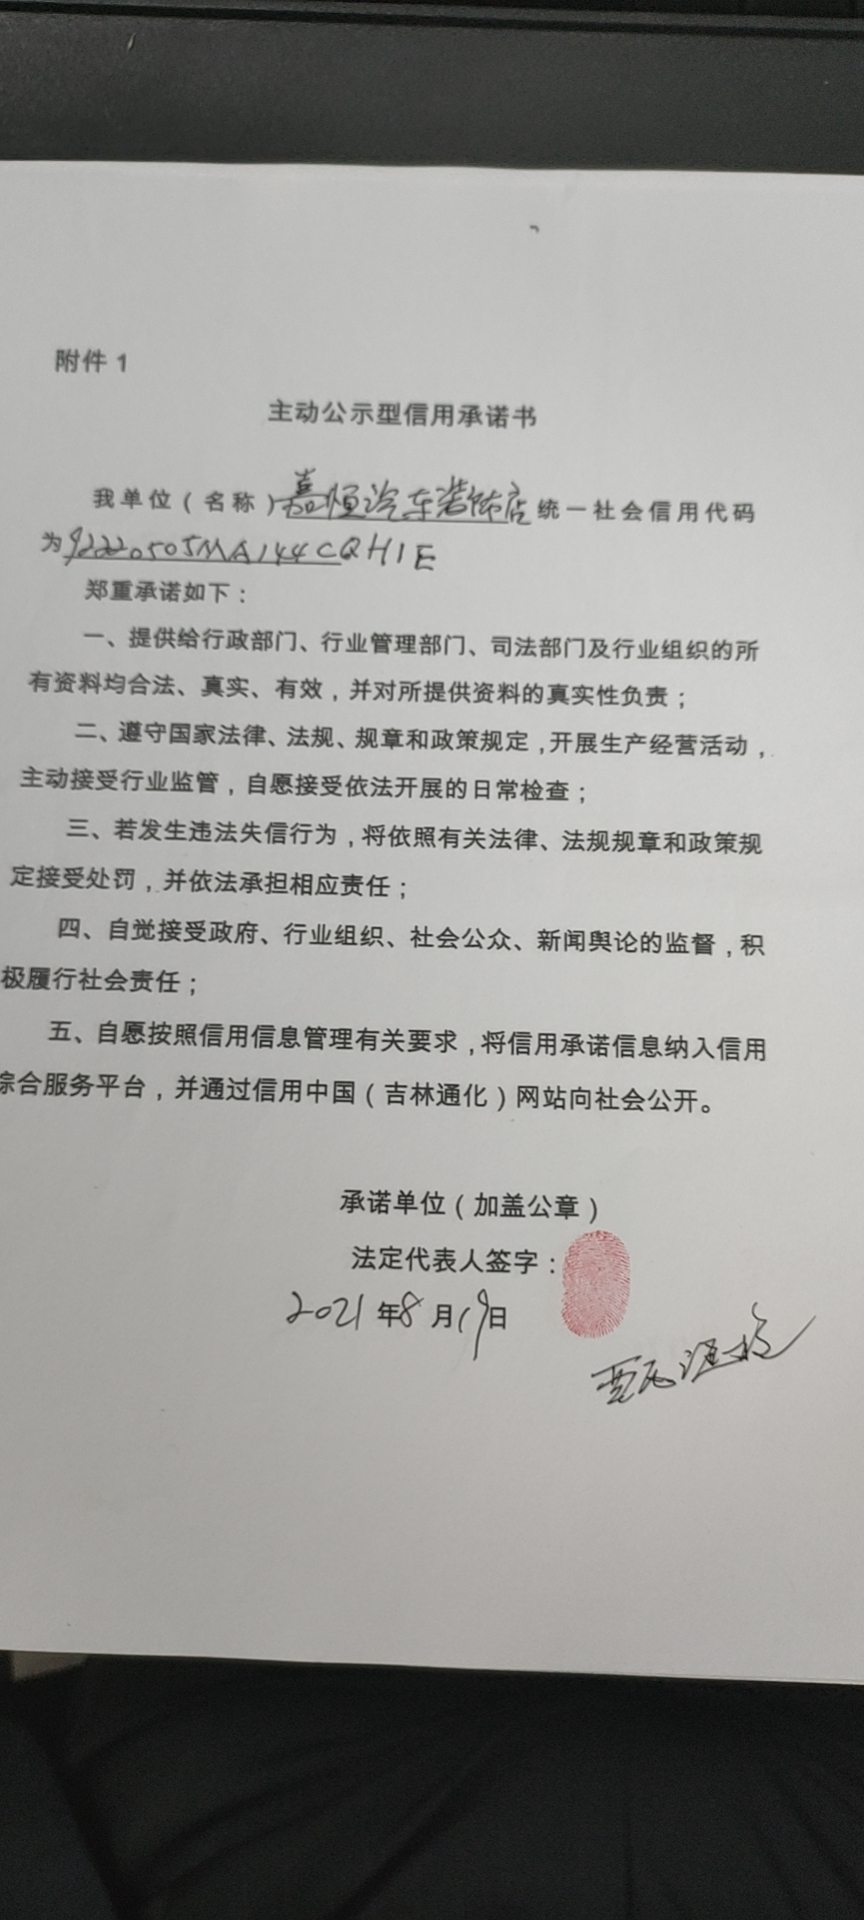 附件 1
主动公示型信用承诺书
我单位（名称）嘉恒汽车装饰店统一社会信用代码
为92220505MA144CQH1E
郑重承诺如下：
一、提供给行政部门、行业管理部门、司法部门及行业组织的所
有资料均合法、真实、有效，并对所提供资料的真实性负责；
二、遵守国家法律、法规、规章和政策规定，开展生产经营活动，
主动接受行业监管，自愿接受依法开展的日常检查；
三、若发生违法失信行为，将依照有关法律、法规规章和政策规
定接受处罚，并依法承担相应责任；
四、自觉接受政府、行业组织、社会公众、新闻舆论的监督，积
极履行社会责任；
五、自愿按照信用信息管理有关要求，将信用承诺信息纳入信用
综合服务平台，并通过信用中国（吉林通化）网站向社会公开。
承诺单位（加盖公章）
法定代表人签字：
2021年8月19日
甄